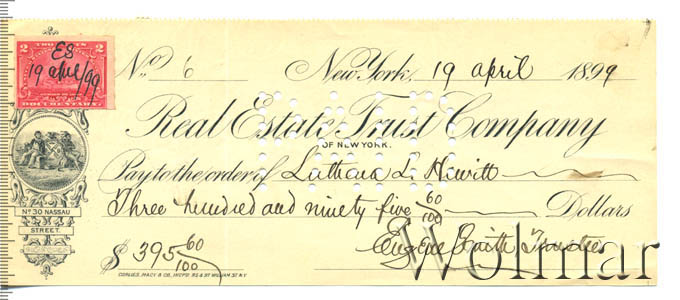 TWO CENTS
2 2
ES
19 april/99
DOCUMENTARY.
No. 6 New York, 19 april 1899
Real Estate Trust Company
OF NEW YORK.
Pay to the order of L. Hewitt
Three hundred and ninety five 60/100 Dollars
$395 60/100 Eugene Smith Trustee
No 30 NASSAU
STREET.
CORLIES, MACY & CO.
Wolmar